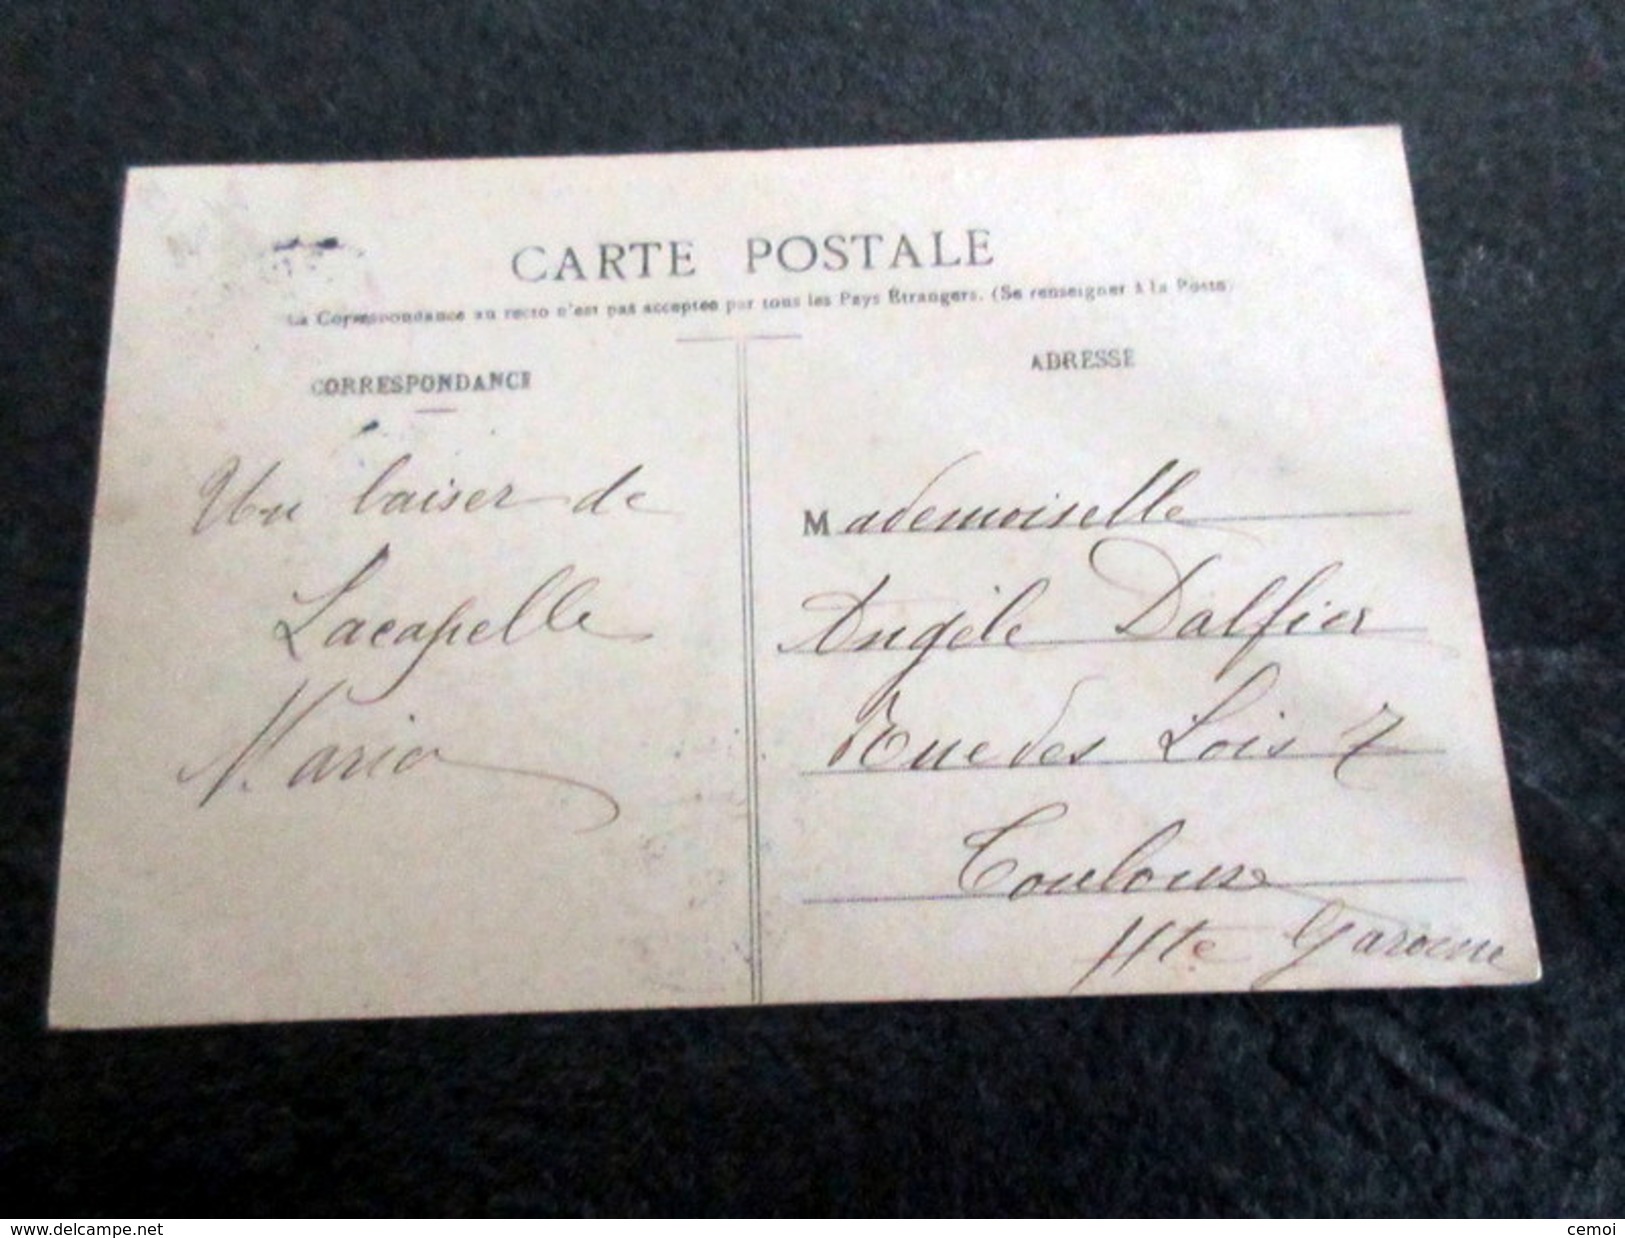 CARTE POSTALE
La Correspondance au recto n'est pas acceptée par tous les Pays Étrangers. (Se renseigner à la Poste)
CORRESPONDANCE
Un baiser de
Lacapelle
Maria
ADRESSE
Mademoiselle
Angèle Dalfier
Rue des Lois 7
Toulouse
Hte Garonne
www.delcampe.net
cemoi